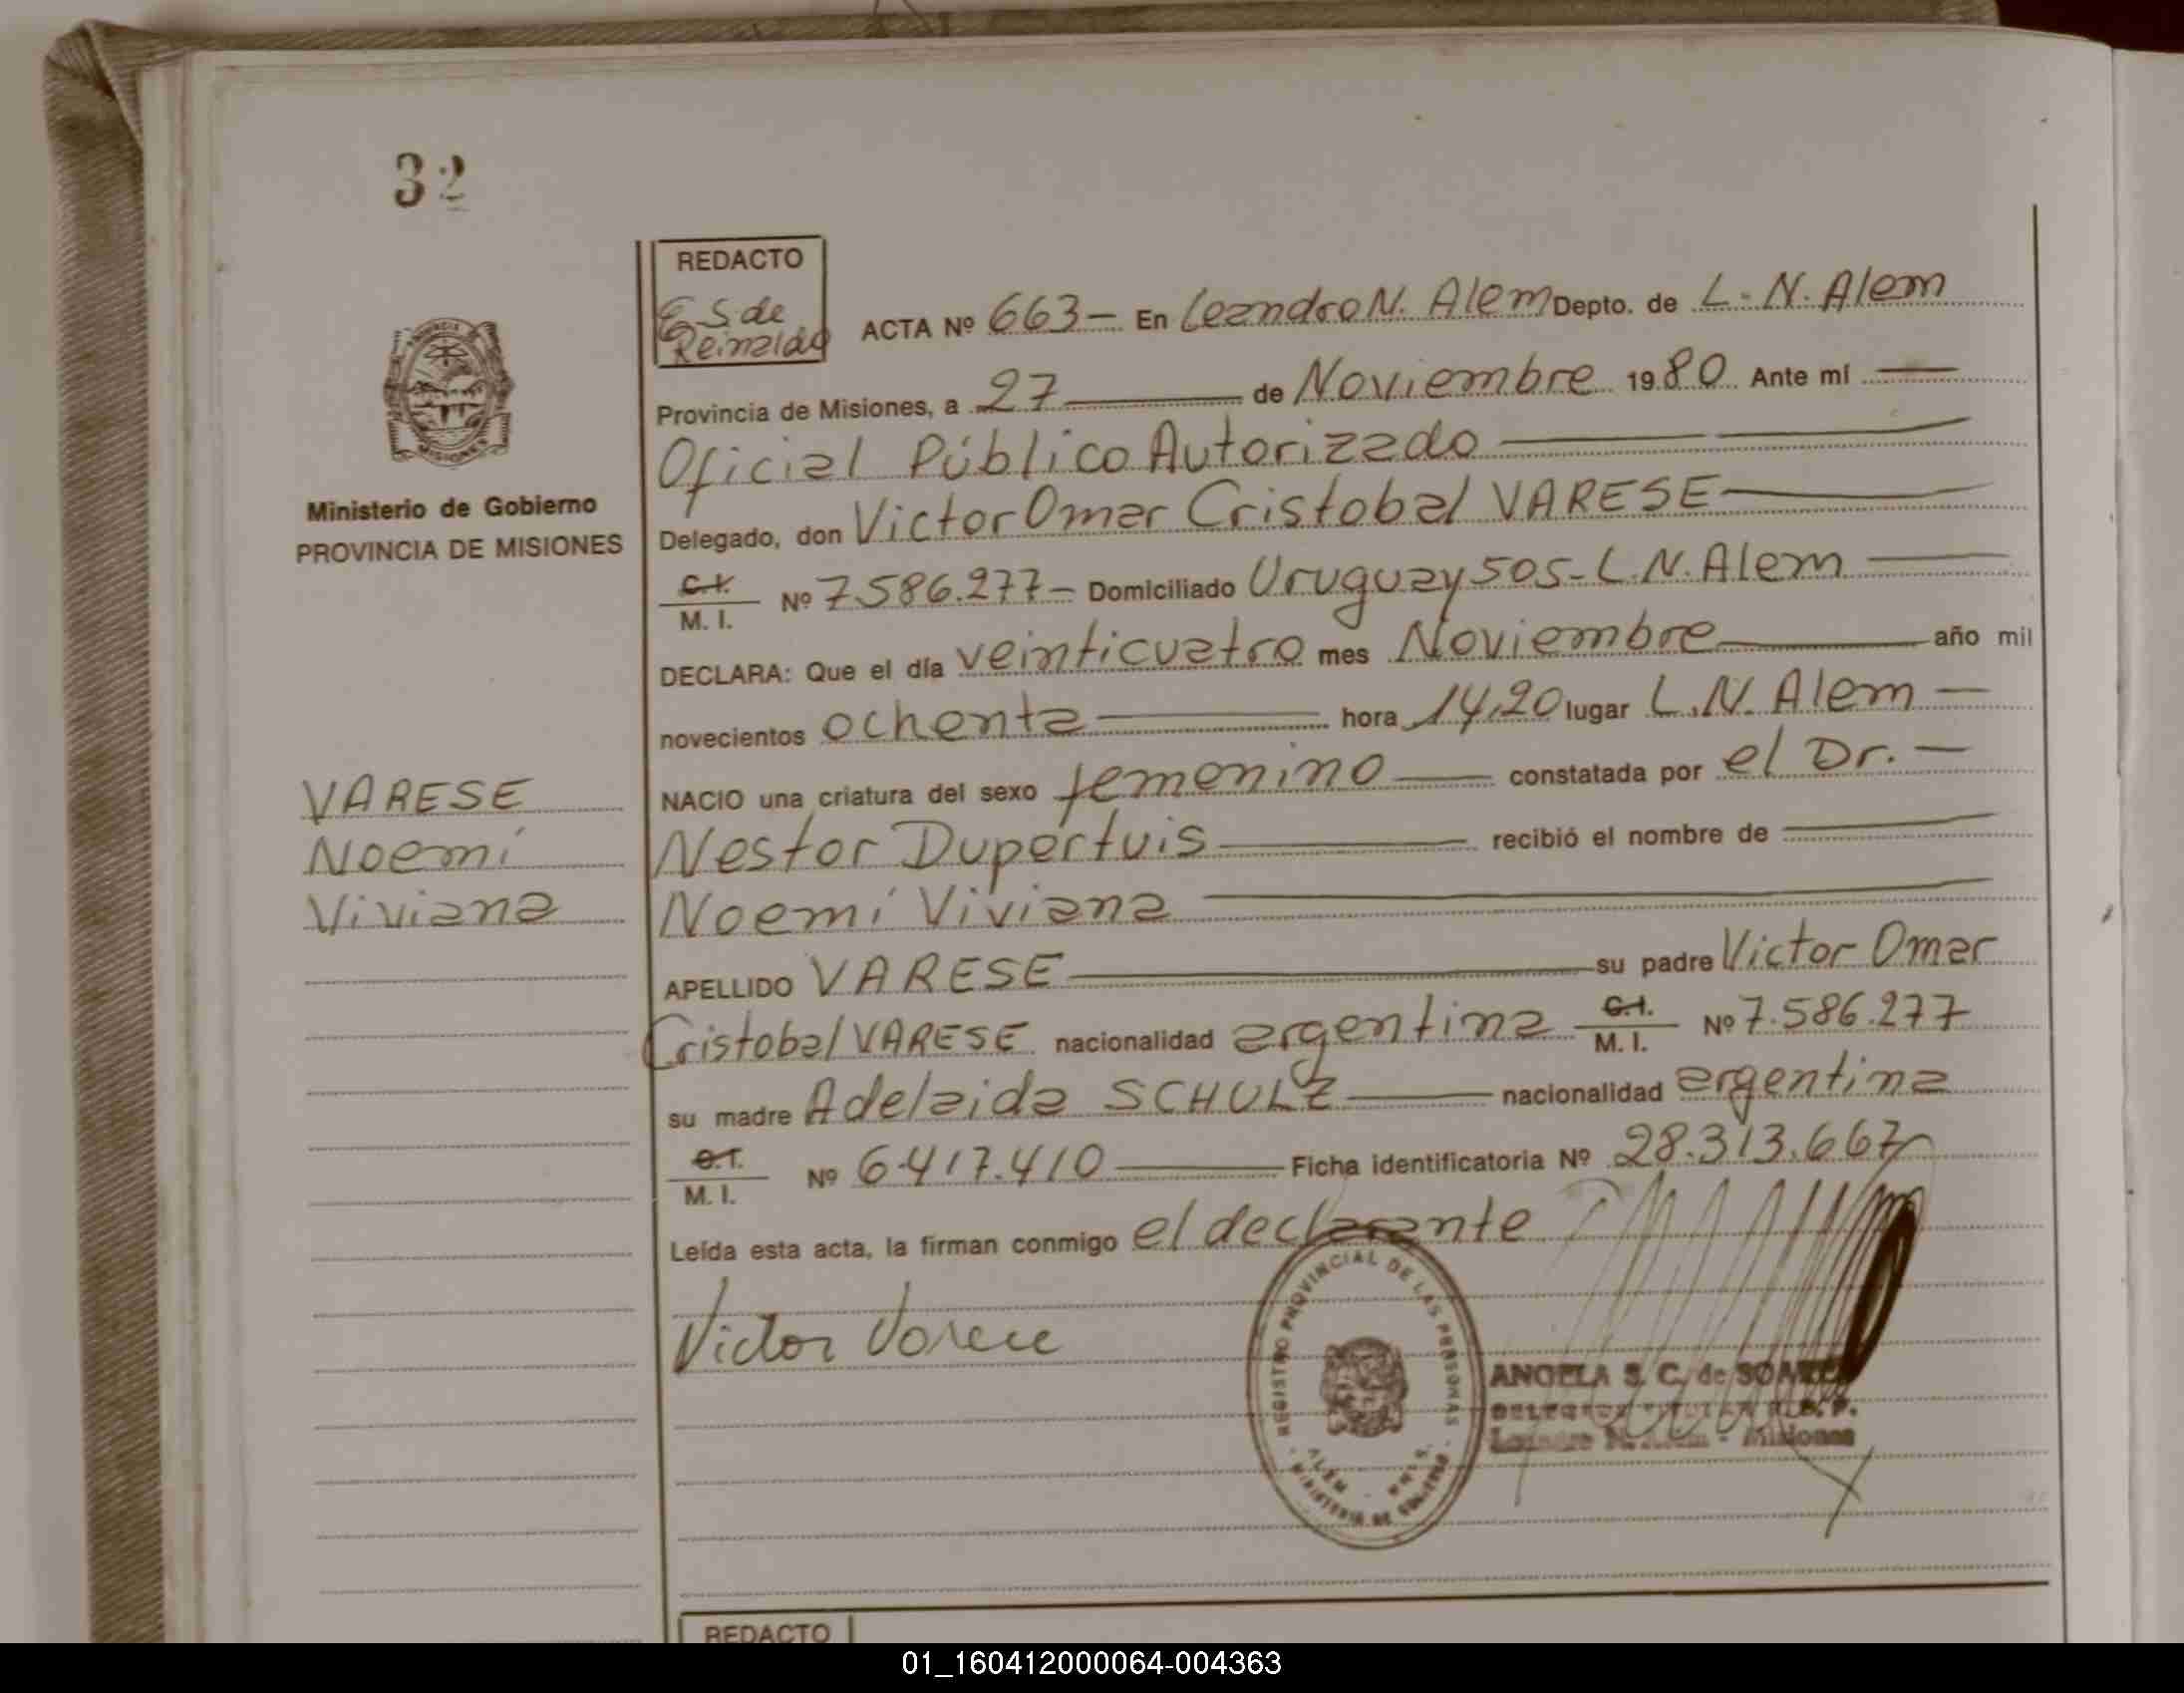 32
REDACTO
E S de
Reinaldo
ACTA Nº 663- En Leandro N. Alem Depto. de L. N. Alem
Provincia de Misiones, a 27 de Noviembre 1980 Ante mí
Oficial Público Autorizado
Delegado, don Victor Omar Cristobal VARESE
Ministerio de Gobierno
PROVINCIA DE MISIONES
C.I.
M. I. Nº 7586.277- Domiciliado Uruguay 505-L.N. Alem
DECLARA: Que el día veinticuatro mes Noviembre año mil
novecientos ochenta hora 14,20 lugar L.N. Alem
NACIO una criatura del sexo femenino constatada por el Dr.
Nestor Dupertuis recibió el nombre de
Noemí Viviana
VARESE
Noemí
Viviana
APELLIDO VARESE su padre Victor Omar
Cristobal VARESE nacionalidad argentina C.I. M. I. Nº 7.586.277
su madre Adelaida SCHULZ nacionalidad argentina
C.I.
M. I. Nº 6.417.410 Ficha identificatoria Nº 28.313.667
Leída esta acta, la firman conmigo el declarante
Victor Varese
REGISTRO PROVINCIAL DE LAS PERSONAS
ALEM
MINISTERIO DE GOBIERNO
ANGELA S. C. de
Misiones
REDACTO
01_160412000064-004363